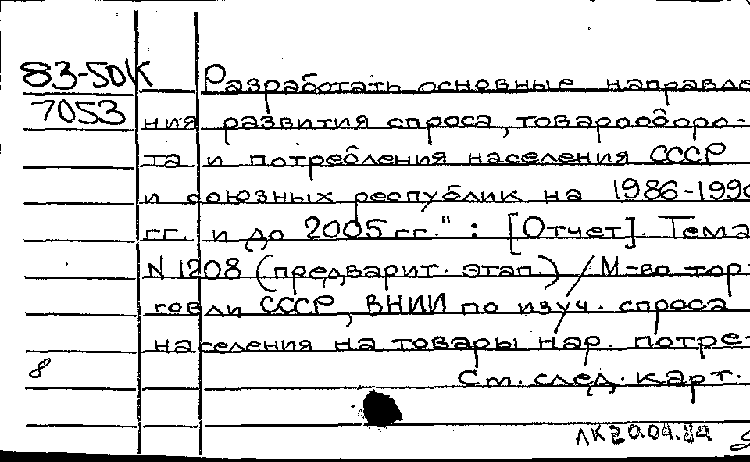 83-50К Разработать основные направле
7053 ния развития спроса, товарооборо-
та и потребления населения СССР
и союзных республик на 1986-1990
гг. и до 2005 гг." : [Отчет]. Тема
N 1208 (предварит. этап.) / М-во тор-
говли СССР, ВНИИ по изуч. спроса
населения на товары нар. потре-
8 См. след. карт.
ЛК 20.04.84